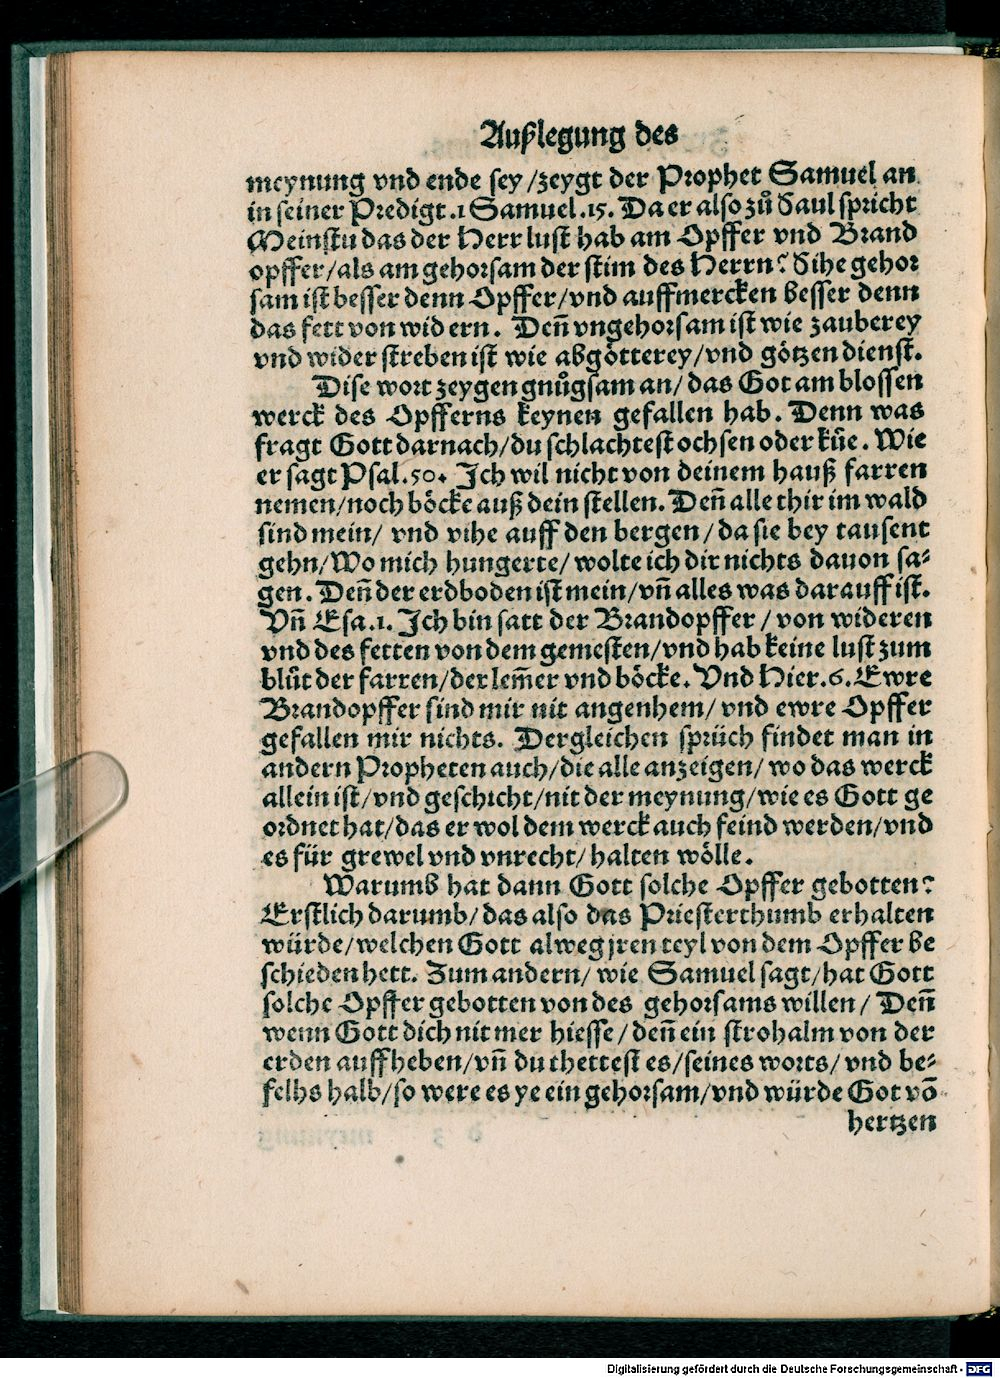 Außlegung des
meynung vnd ende sey /zeygt der Prophet Samuel an
in seiner Predigt .1 Samuel .15. Da er also zů Saul spricht
Meinstu das der Herr lust hab am Opffer vnd Brand
opffer/als am gehorsam der stim des Herrn? Sihe gehor
sam ist besser denn Opffer/vnd auffmercken besser denn
das fett von widern. Deñ vngehorsam ist wie zauberey
vnd widerstreben ist wie abgötterey/vnd götzen dienst.
Dise wort zeygen gnůgsam an/ das Got am blossen
werck des Opfferns keynen gefallen hab. Denn was
fragt Gott darnach/du schlachtest ochsen oder kůe. Wie
er sagt Psal .50. Ich wil nicht von deinem hauß farren
nemen/noch böcke auß dein stellen. Deñ alle thir im wald
sind mein/ vnd vihe auff den bergen /da sie bey tausent
gehn/Wo mich hungerte/ wolte ich dir nichts dauon sa-
gen. Deñ der erdboden ist mein/vñ alles was darauff ist.
Vñ Esa .1. Ich bin satt der Brandopffer / von wideren
vnd des fetten von dem gemesten/vnd hab keine lust zum
blůt der farren/der lem̃er vnd böcke. Vnd Hier. 6. Ewre
Brandopffer sind mir nit angenhem/ vnd ewre Opffer
gefallen mir nichts. Dergleichen sprüch findet man in
andern Propheten auch/die alle anzeigen/ wo das werck
allein ist/vnd geschicht/nit der meynung/wie es Gott ge
ordnet hat/das er wol dem werck auch feind werden/vnd
es für grewel vnd vnrecht/ halten wölle.
Warumb hat dann Gott solche Opffer gebotten?
Erstlich darumb/das also das Priesterthumb erhalten
würde/welchen Gott alweg jren teyl von dem Opffer be
schieden hett. Zum andern/ wie Samuel sagt/hat Gott
solche Opffer gebotten von des gehorsams willen/ Deñ
wenn Gott dich nit mer hiesse / deñ ein strohalm von der
erden auffheben/vñ du thettest es/seines worts/ vnd be-
felhs halb/so were es ye ein gehorsam/vnd würde Got võ
hertzen
Digitalisierung gefördert durch die Deutsche Forschungsgemeinschaft - DFG